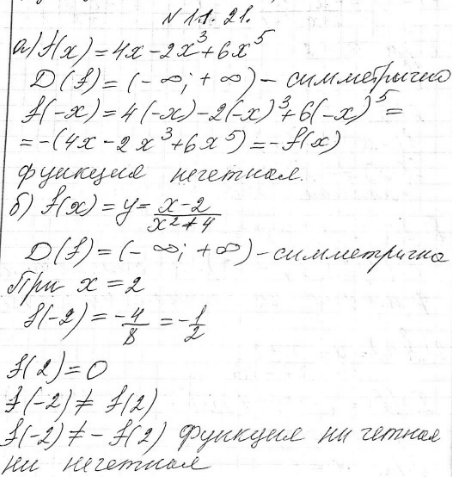 N 11.21.
а) f(x) = 4x - 2x³ + 6x⁵
D(f) = (-∞; +∞) - симметрично
f(-x) = 4(-x) - 2(-x)³ + 6(-x)⁵ =
= -(4x - 2x³ + 6x⁵) = -f(x)
функция нечетная.
б) f(x) = y = (x-2)/(x²+4)
D(f) = (-∞; +∞) - симметрично
При x = 2
f(-2) = -4/8 = -1/2
f(2) = 0
f(-2) ≠ f(2)
f(-2) ≠ -f(2) функция ни четная
ни нечетная